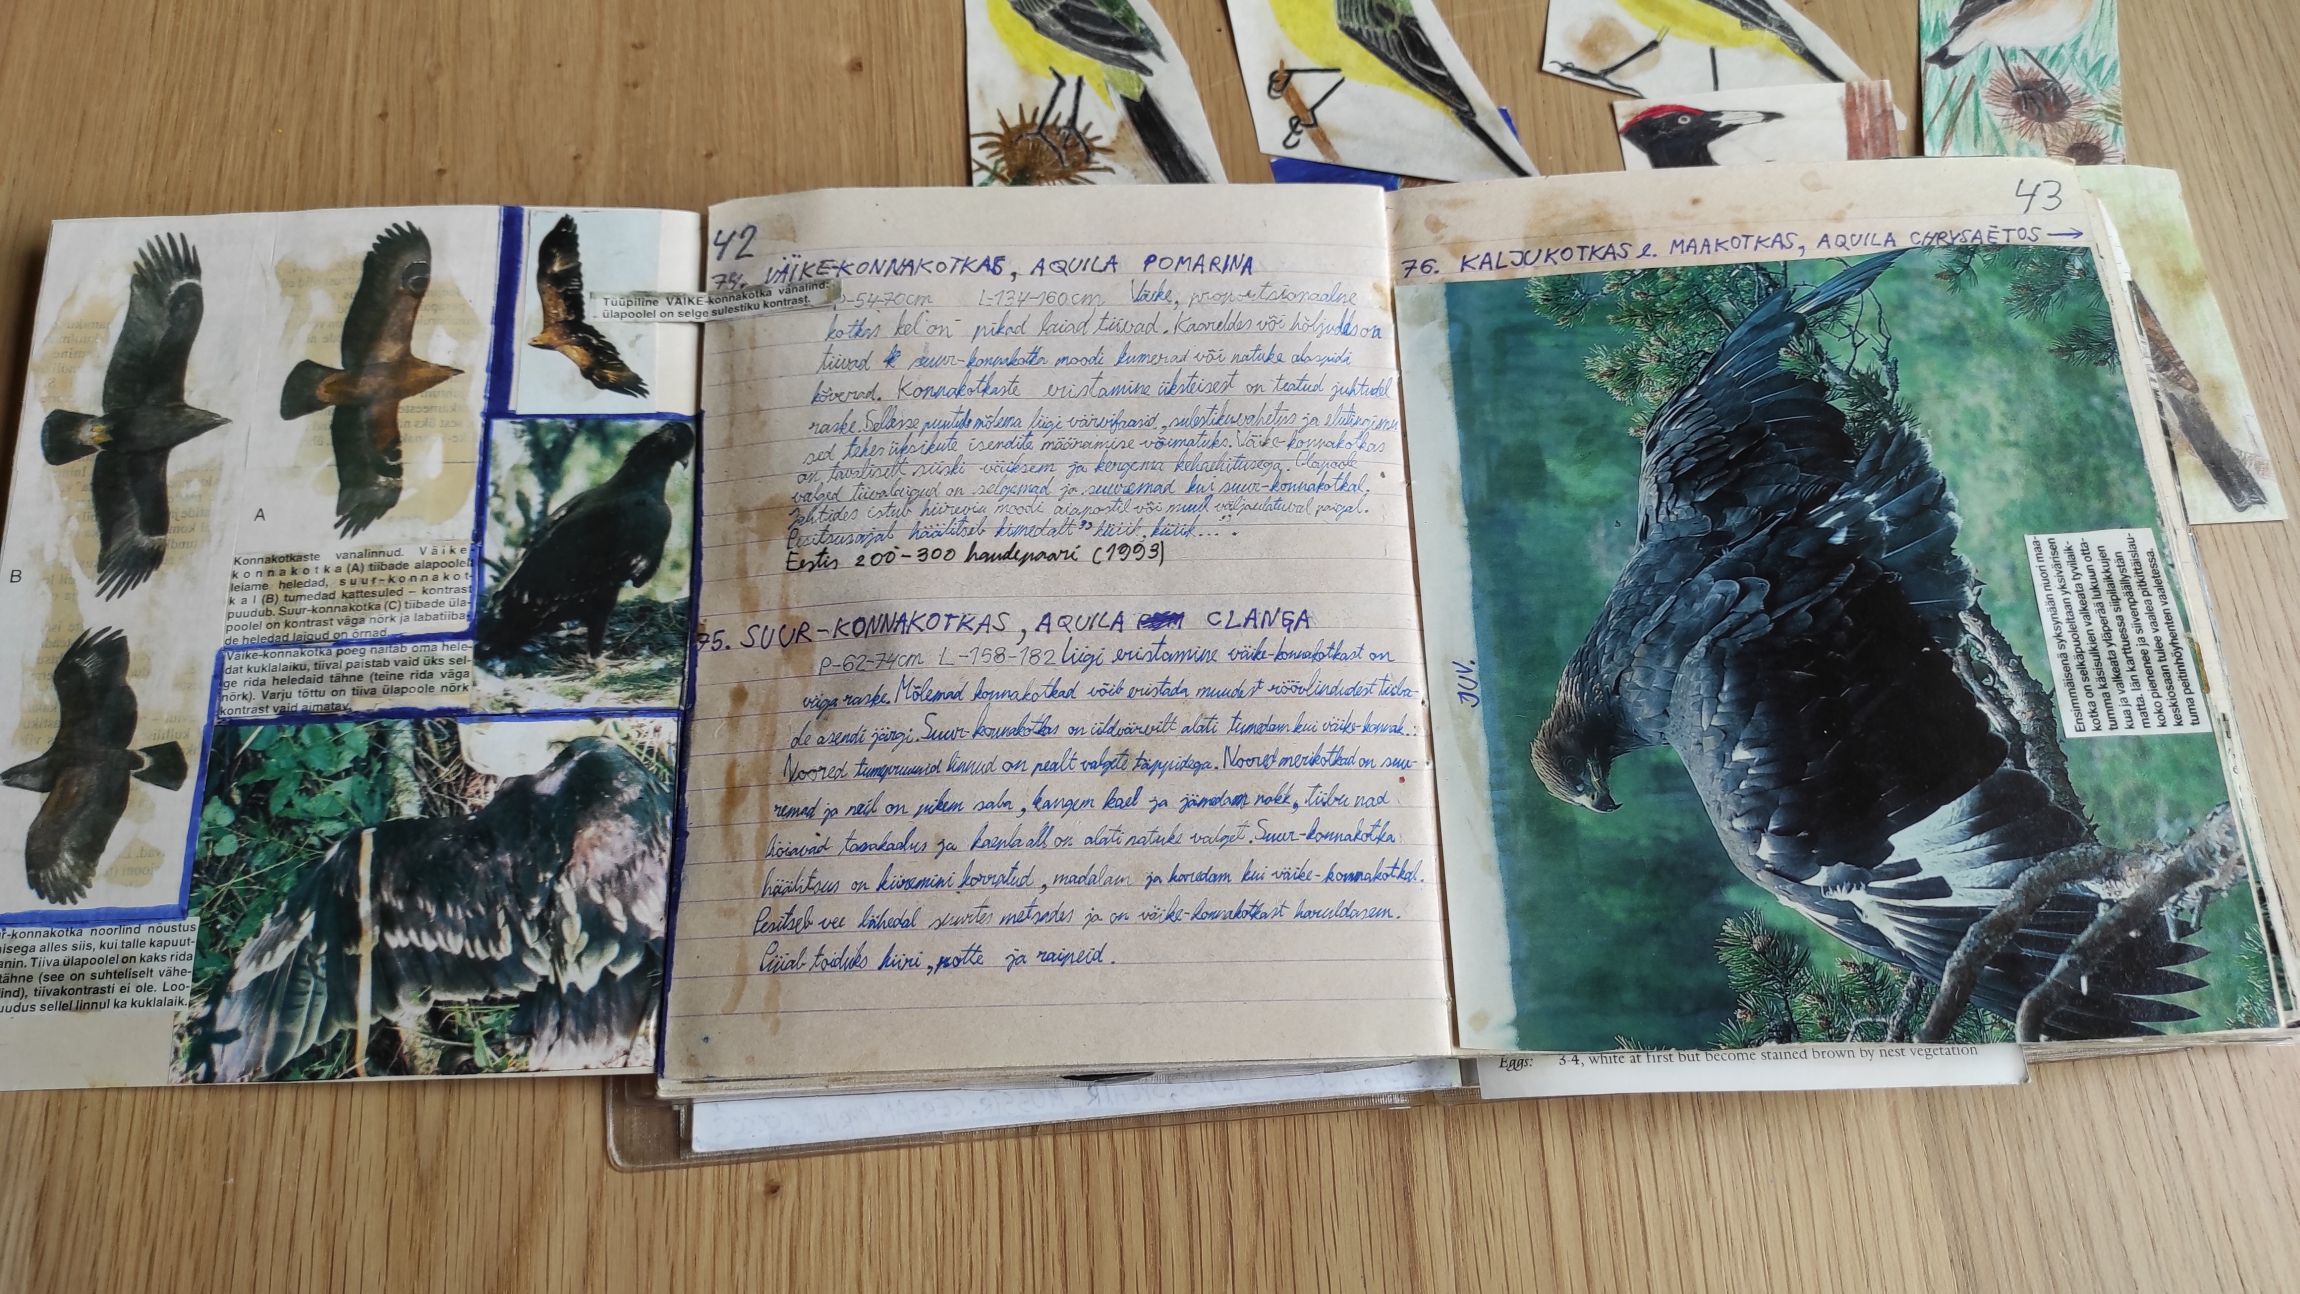 B
A
Konnakotkaste vanalinnud. Väike-
konnakotka (A) tiibade alapoolel
leiame heledad, suur-konnakot-
kal (B) tumedad kattesuled – kontrast
puudub. Suur-konnakotka (C) tiibade üla-
poolel on kontrast väga nõrk ja labatiiba-
de heledad laigud on õrnad.
Väike-konnakotka poeg näitab oma hele-
dat kuklalaiku, tiival paistab vaid üks sel-
ge rida heledaid tähne (teine rida väga
nõrk). Varju tõttu on tiiva ülapoole nõrk
kontrast vaid aimatav.
r-konnakotka noorlind nõustus
isega alles siis, kui talle kapuut-
anin. Tiiva ülapoolel on kaks rida
tähne (see on suhteliselt vähe-
lind), tiivakontrasti ei ole. Loo-
uudus sellel linnul ka kuklalaik.
Tüüpiline VÄIKE-konnakotka vanalind:
ülapoolel on selge sulestiku kontrast.
42
74. VÄIKE-KONNAKOTKAS, AQUILA POMARINA
P-54-70cm L-134-160cm Väike, proportsionaalne
kotkas kel on pikad laiad tiivad. Kaareldes või hõljudes on
tiivad suur-konnakotka moodi kumerad või natuke alaspidi
kõverad. Konnakotkaste eristamine üksteisest on teatud juhtudel
raske. Sellesse puutub mõlema liigi värvifaasid, sulestikuvahetus ja
sed tehes üksikute isendite määramise võimatuks. Väike-konnakotkas
on tavaliselt siiski väiksem ja kergema kehaehitusega. Ülapoole
valged tiivalaigud on selgemad ja suuremad kui suur-konnakotkal.
Jahtides istub hiireviu moodi aiapostil või muul väljaulatuval paigal.
Pesitsusajal häälitseb kimedalt "küük, küük...".
Eestis 200-300 haudepaari (1993)
75. SUUR-KONNAKOTKAS, AQUILA CLANGA
P-62-74cm L-158-182 Liigi eristamine väike-konnakotkast on
väga raske. Mõlemad konnakotkad võib eristada muudest röövlindudest tiiba-
de asendi järgi. Suur-konnakotkas on üldvärvilt alati tumedam kui väike-konnak.
Noored tumepruunid linnud on pealt valgete täppidega. Noored merikotkad on suu-
remad ja neil on pikem saba, kangem kael ja jämedam nokk, tiibu nad
hoiavad tasakaalus ja kaenla all on alati natuke valget. Suur-konnakotka
häälitsus on kiiremini korratud, madalam ja haredam kui väike-konnakotkal.
Pesitseb vee lähedal suurtes metsades ja on väike-konnakotkast haruldasem.
Püüab toiduks hiiri, rotte ja raipeid.
43
76. KALJUKOTKAS e. MAAKOTKAS, AQUILA CHRYSAËTOS →
JUV.
Ensimmäisenä syksynään nuori maa-
kotka on selkäpuoleltaan yksivärisen
tumma käsisulkien valkeata tyvilaik-
kua ja valkeata yläperää lukuun otta-
matta. Iän karttuessa siipilaikkujen
koko pienenee ja siivenpäällystän
keskiosaan tulee vaalea pilkittäislau-
tuma peitinhöyhenten vaaletessa.
Eggs: 3-4, white at first but become stained brown by nest vegetation